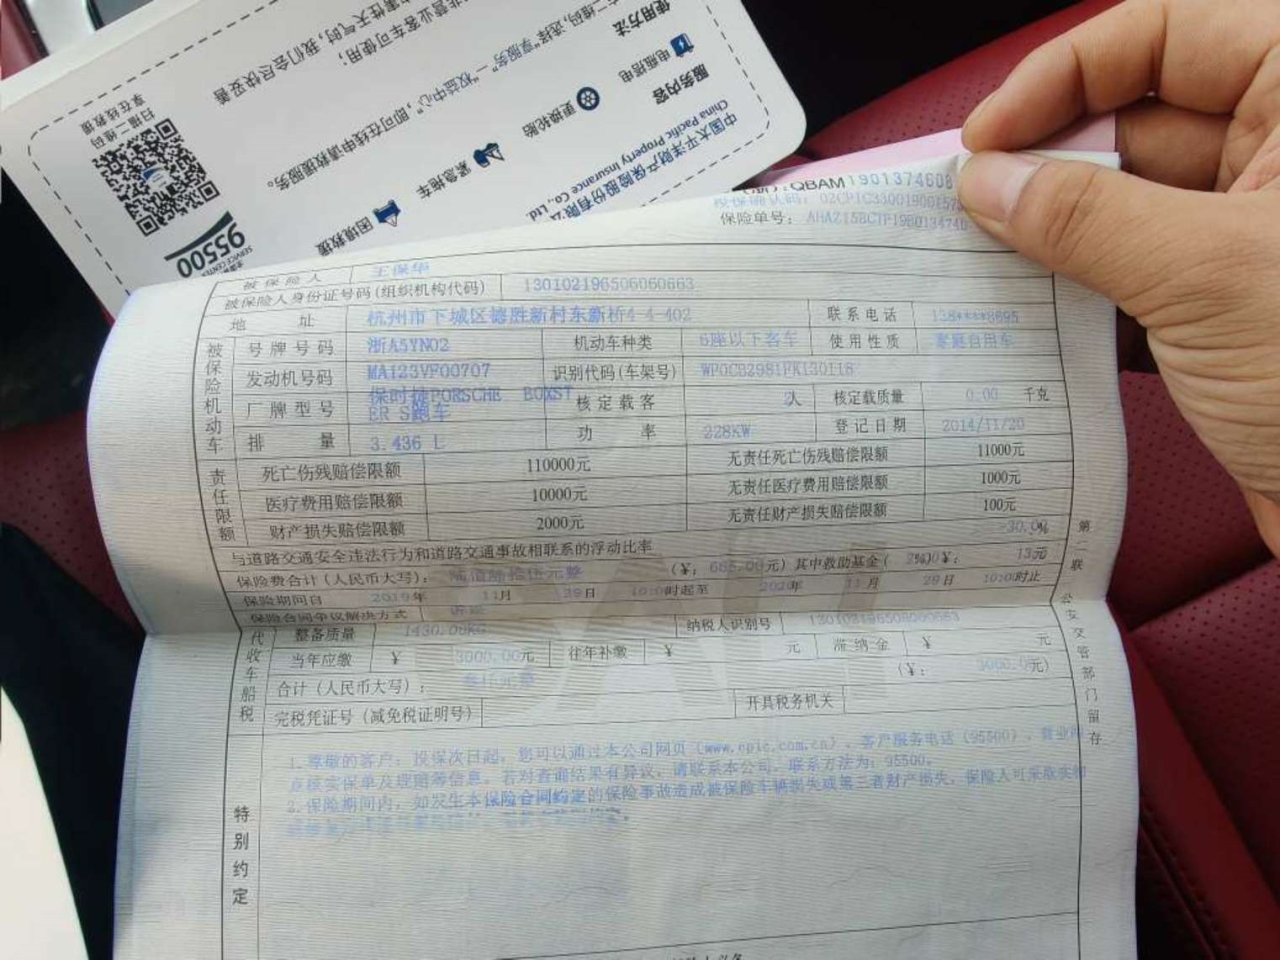 中国太平洋财产保险股份有限公
China Pacific Property Insurance Co., Ltd.
服务内容
电瓶搭电
更换轮胎
紧急拖车
困境救援
使用方法
二维码,选择“享服务”—“权益中心”,即可在线申请救援服务。
非营业客车可使用;
害性天气时,我们会尽快妥善
扫描二维码
享在线救援
95500
SERVICE CENTER
(浙): QBAM 1901374608
投保确认码: 02CPIC3300190015
保险单号: AHAZ158CTP19B013474
被保险人 王保华
被保险人身份证号码(组织机构代码) 130102196506060663
地 址 杭州市下城区德胜新村东新桥4-4-402 联系电话 138****8695
被保险机动车
号牌号码 浙A5YN02 机动车种类 6座以下客车 使用性质 家庭自用车
发动机号码 MA123VF00707 识别代码(车架号) WP0CB2981FK130118
厂牌型号 保时捷PORSCHE BOXST
ER S跑车 核定载客 2人 核定载质量 0.00 千克
排 量 3.436 L 功 率 228KW 登记日期 2014/11/20
责任限额
死亡伤残赔偿限额 110000元 无责任死亡伤残赔偿限额 11000元
医疗费用赔偿限额 10000元 无责任医疗费用赔偿限额 1000元
财产损失赔偿限额 2000元 无责任财产损失赔偿限额 100元
与道路交通安全违法行为和道路交通事故相联系的浮动比率 -30.0%
保险费合计(人民币大写): 陆佰陆拾伍元整 (¥: 665.00元) 其中救助基金( 2%)0¥: 13元
保险期间自 2019年 11月 29日 时起至 202 年 11月 29日 时止
保险合同争议解决方式 诉讼
代收车船税
整备质量 1430.00KG 纳税人识别号 130102196506060663
当年应缴 ¥ 3000.00元 往年补缴 ¥ 元 滞纳金 ¥ 元
合计(人民币大写): 叁仟元整 (¥: 3000.0元)
完税凭证号(减免税证明号) 开具税务机关
特别约定
1.尊敬的客户:投保次日起,您可以通过本公司网页(www.cpic.com.cn)、客户服务电话(95500)、营业
核实保单及理赔等信息。若对查询结果有异议,请联系本公司。联系方法为:95500。
2.保险期间内,如发生本保险合同约定的保险事故造成被保险车辆损失或第三者财产损失,保险人可采取实物
第 联 公安交管部门留存